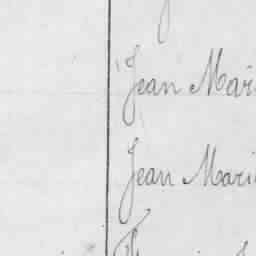 Jean Mari
Jean Mari